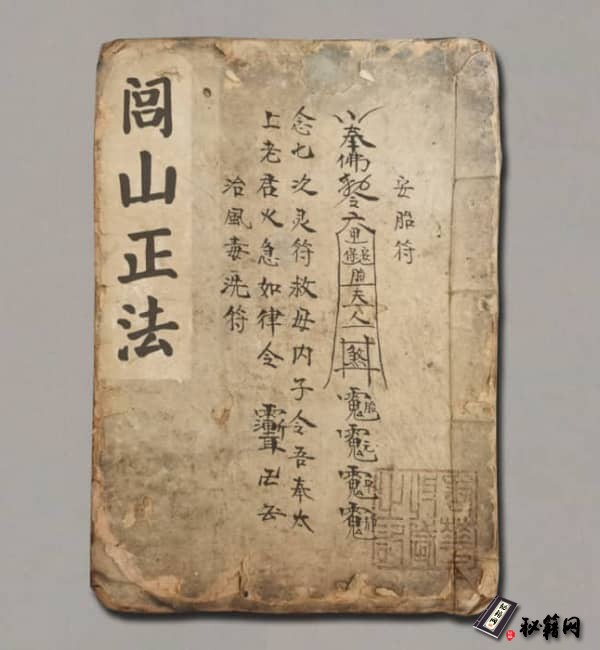 闾山正法
安胎符
奉佛敕令六甲胎夫人煞
念七次灵符救母内子令吾奉太
上老君火急如律令
治風毒洗符
秘籍网